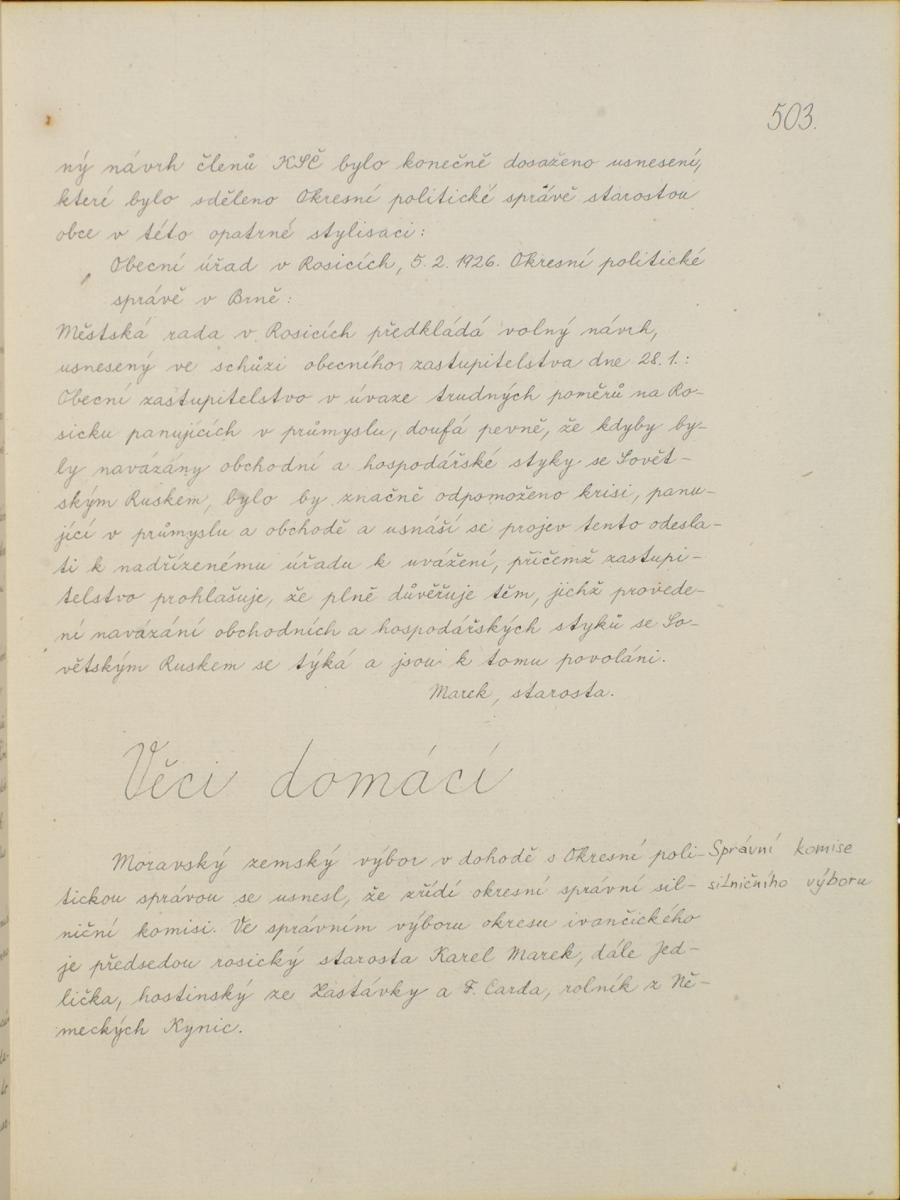 503.
ný návrh členů KSČ bylo konečně dosaženo usnesení,
které bylo sděleno Okresní politické správě starostou
obce v této opatrné stylisaci:
Obecní úřad v Rosicích, 5. 2. 1926. Okresní politické
správě v Brně:
Městská rada v Rosicích předkládá volný návrh,
usnesený ve schůzi obecního zastupitelstva dne 28. 1.:
Obecní zastupitelstvo v úvaze trudných poměrů na Ro-
sicku panujících v průmyslu, doufá pevně, že kdyby by-
ly navázány obchodní a hospodářské styky se Sovět-
ským Ruskem, bylo by značně odpomoženo krisi, panu-
jící v průmyslu a obchodě a usnáší se projev tento odesla-
ti k nadřízenému úřadu k uvážení, přičemž zastupi-
telstvo prohlašuje, že plně důvěřuje těm, jichž provede-
ní navázání obchodních a hospodářských styků se So-
větským Ruskem se týká a jsou k tomu povoláni.
Marek, starosta.
Věci domácí
Moravský zemský výbor v dohodě s Okresní poli-
tickou správou se usnesl, že zřídí okresní správní sil-
niční komisi. Ve správním výboru okresu ivančického
je předsedou rosický starosta Karel Marek, dále Jed-
lička, hostinský ze Zastávky a F. Carda, rolník z Ně-
meckých Kynic.
Správní komise
silničního výboru